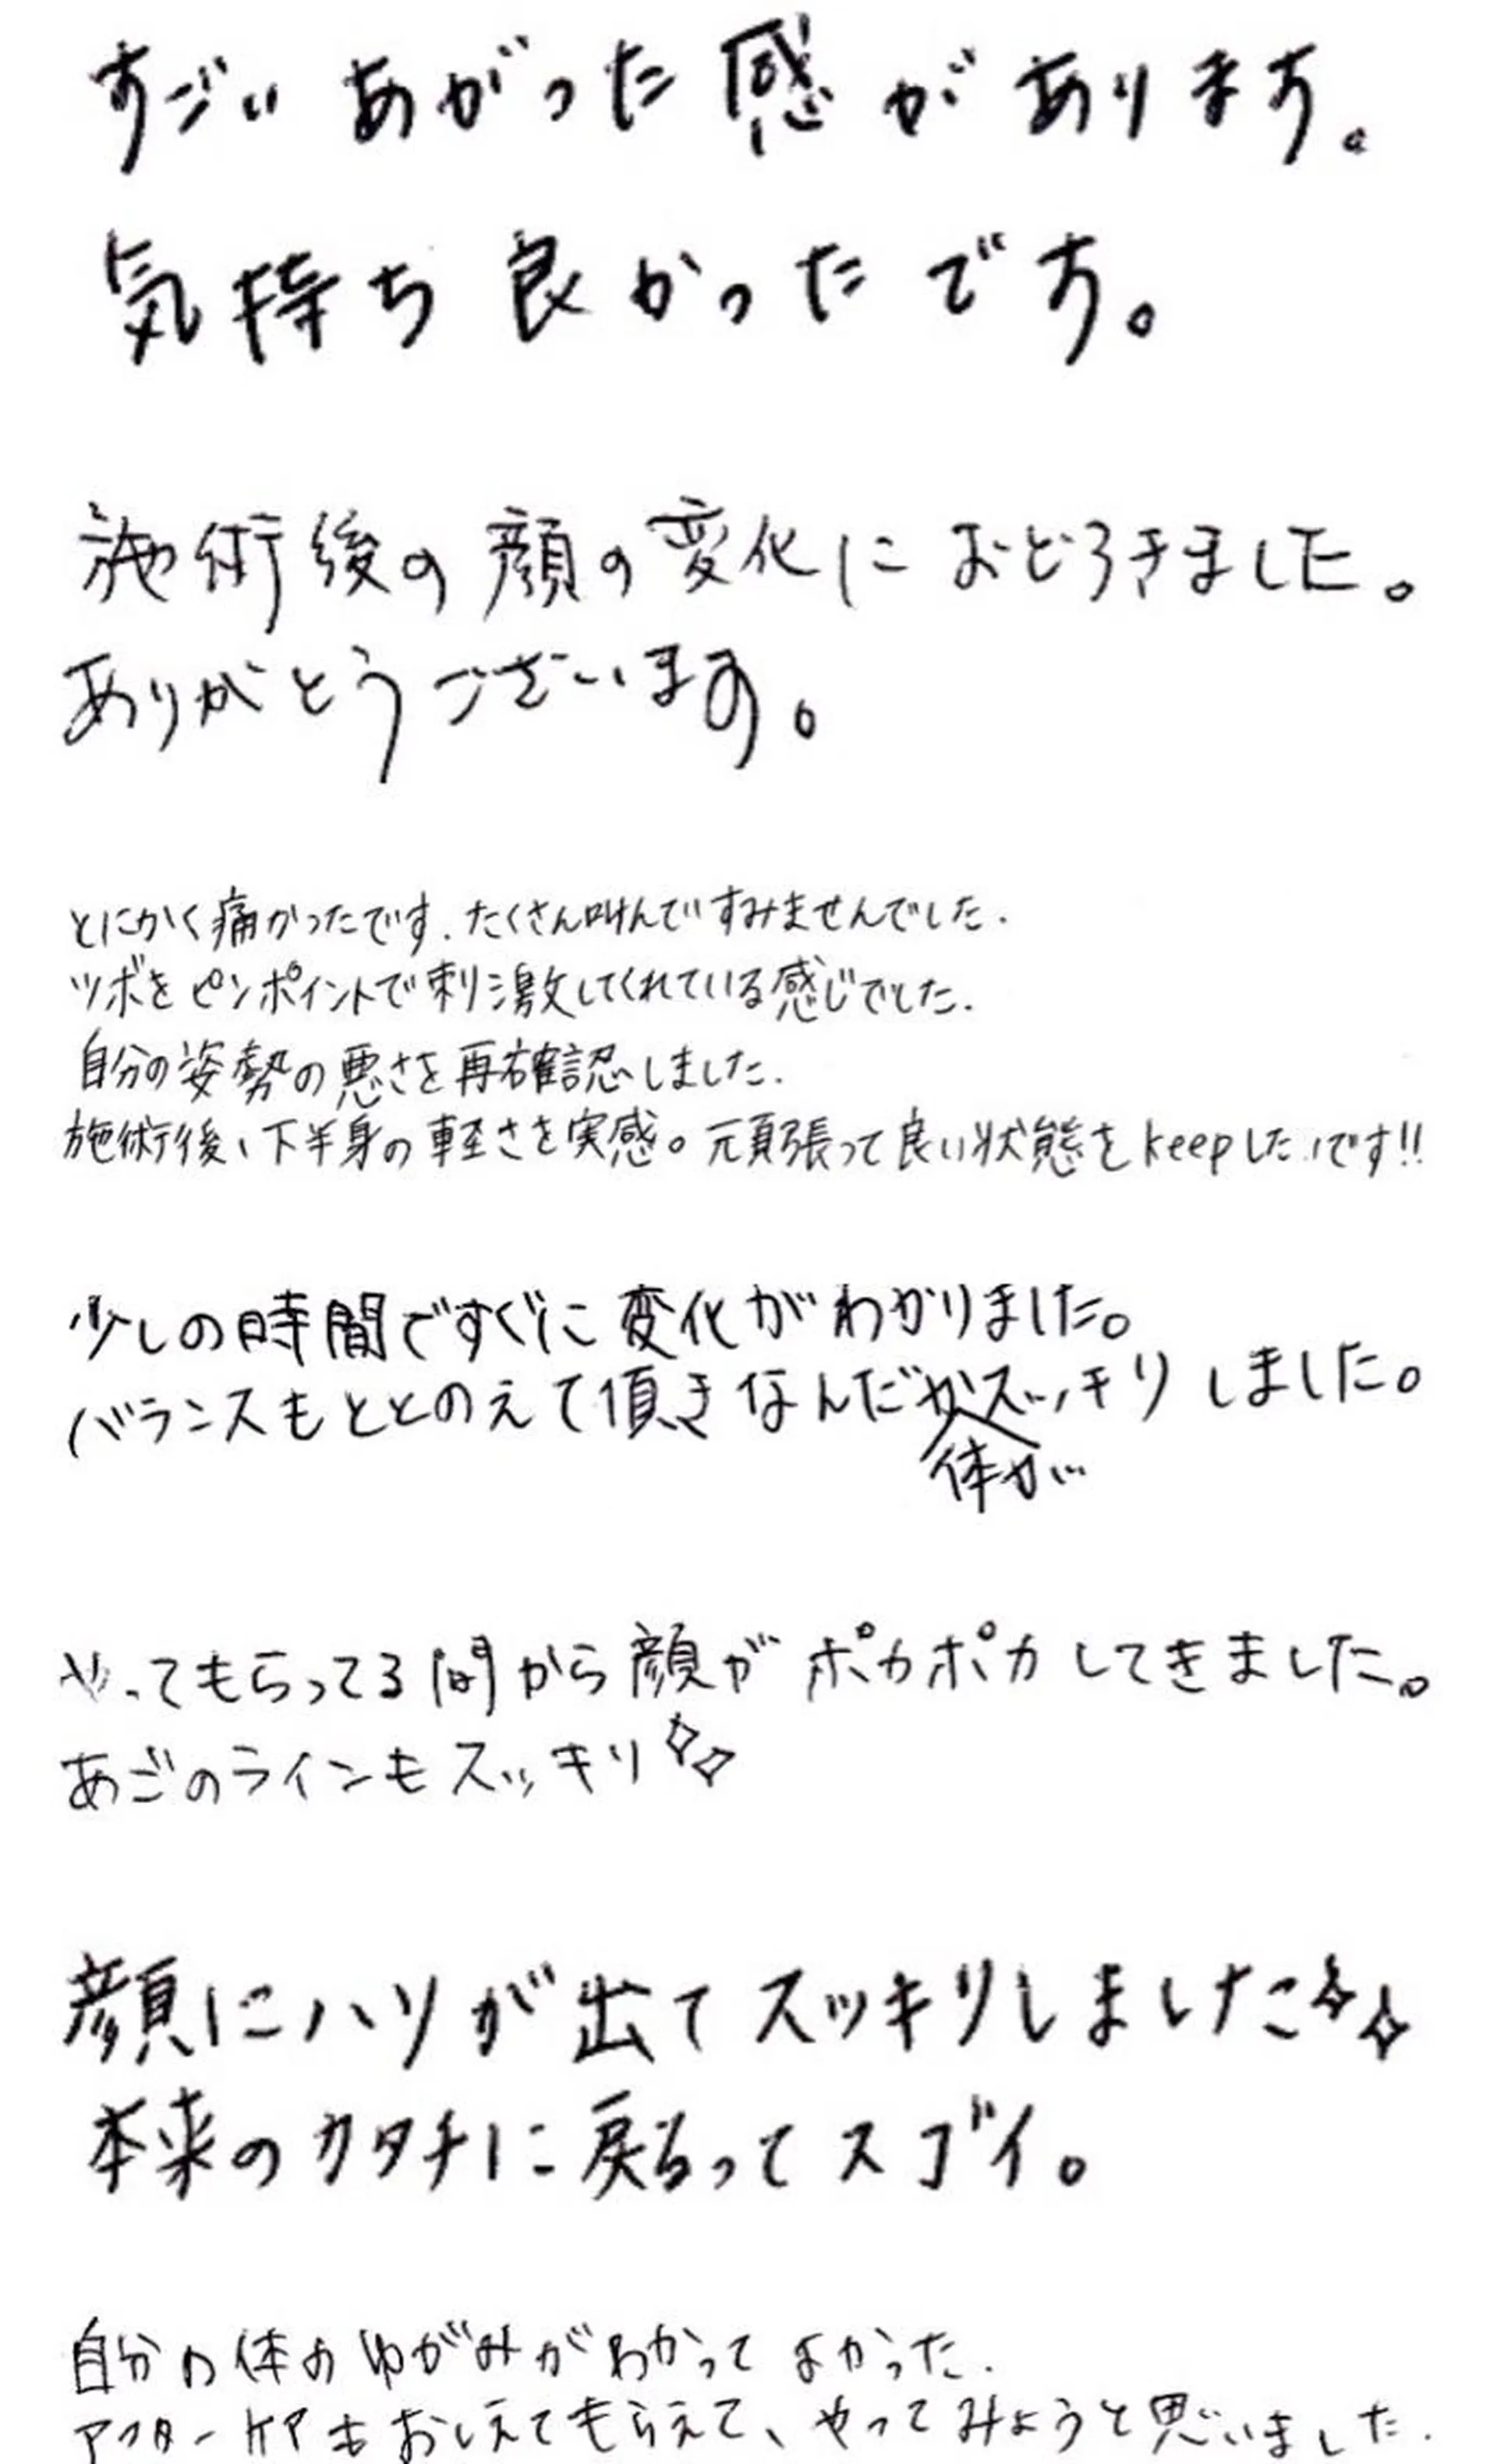 すごい あがった 感 が あります。
気持ち 良かった です。
施術後の 顔の変化に おどろきました。
ありがとうございます。
とにかく痛かったです.たくさん叫んですみませんでした.
ツボをピンポイントで刺激してくれている感じでした.
自分の姿勢の悪さを再確認しました.
施術後、下半身の軽さを実感。頑張って良い状態をkeepしたいです!!
少しの時間ですぐに変化がわかりました。
バランスもととのえて頂きなんだかスッキリしました。
体が
やってもらってる間から顔がポカポカしてきました。
あごのラインもスッキリ✧✧
顔にハリが出てスッキリしました✧✧
本来のカタチに戻るってスゴイ。
自分の体のゆがみがわかってよかった.
アフターケアもおしえてもらえて、やってみようと思いました.